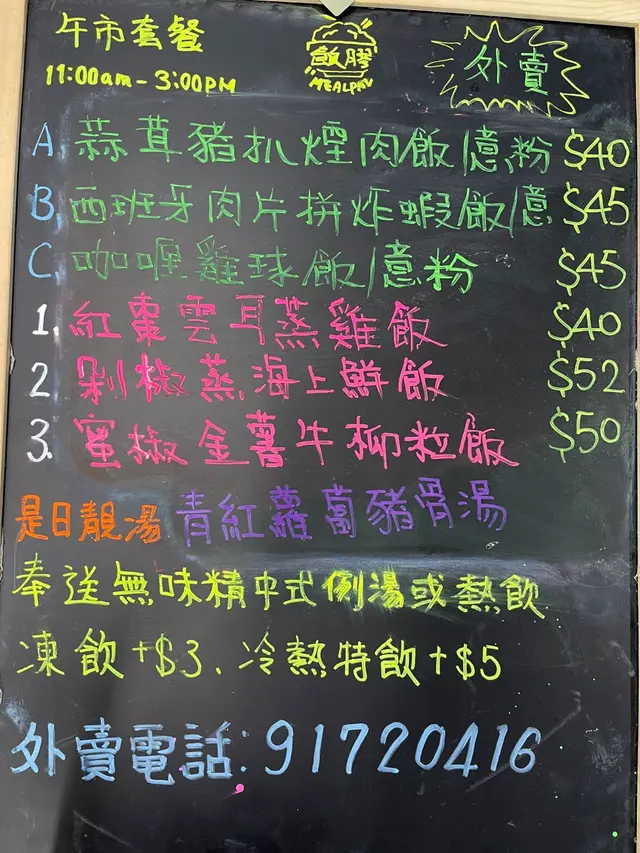 午市套餐
11:00am - 3:00PM
飯膠
外賣
A. 蒜茸豬扒煙肉飯/意粉 $40
B. 西班牙肉片拼炸蝦飯/意 $45
C. 咖喱雞球飯/意粉 $45
1. 紅棗雲耳蒸雞飯 $40
2 剁椒蒸海上鮮飯 $52
3. 蜜椒金薯牛柳粒飯 $50
是日靚湯 青紅蘿蔔豬骨湯
奉送無味精中式例湯或熱飲
凍飲+$3、冷熱特飲+$5
外賣電話: 91720416